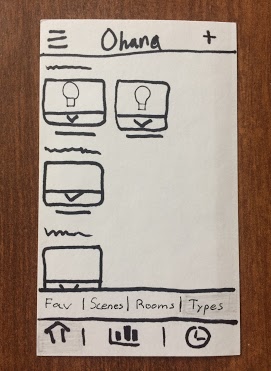 Ohana +
Fav | Scenes | Rooms | Types